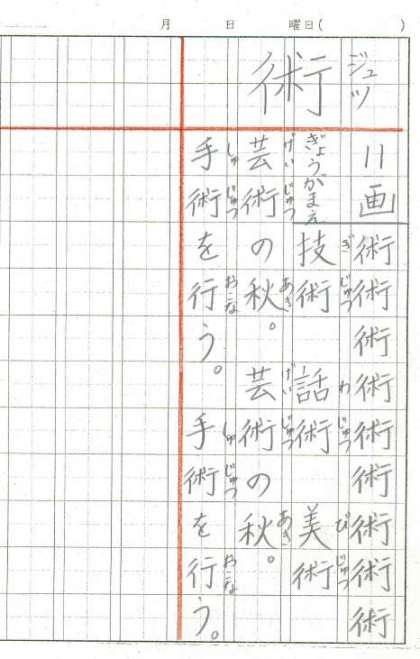 月　日　曜日(　)
ジュツ
術
11画 術術術術術術術術術
ぎじゅつ わじゅつ びじゅつ
ぎょうがまえ 技術 話術 美術
げいじゅつ あき げいじゅつ あき
芸術の秋。 芸術の秋。
しゅじゅつ おこな しゅじゅつ おこな
手術を行う。 手術を行う。